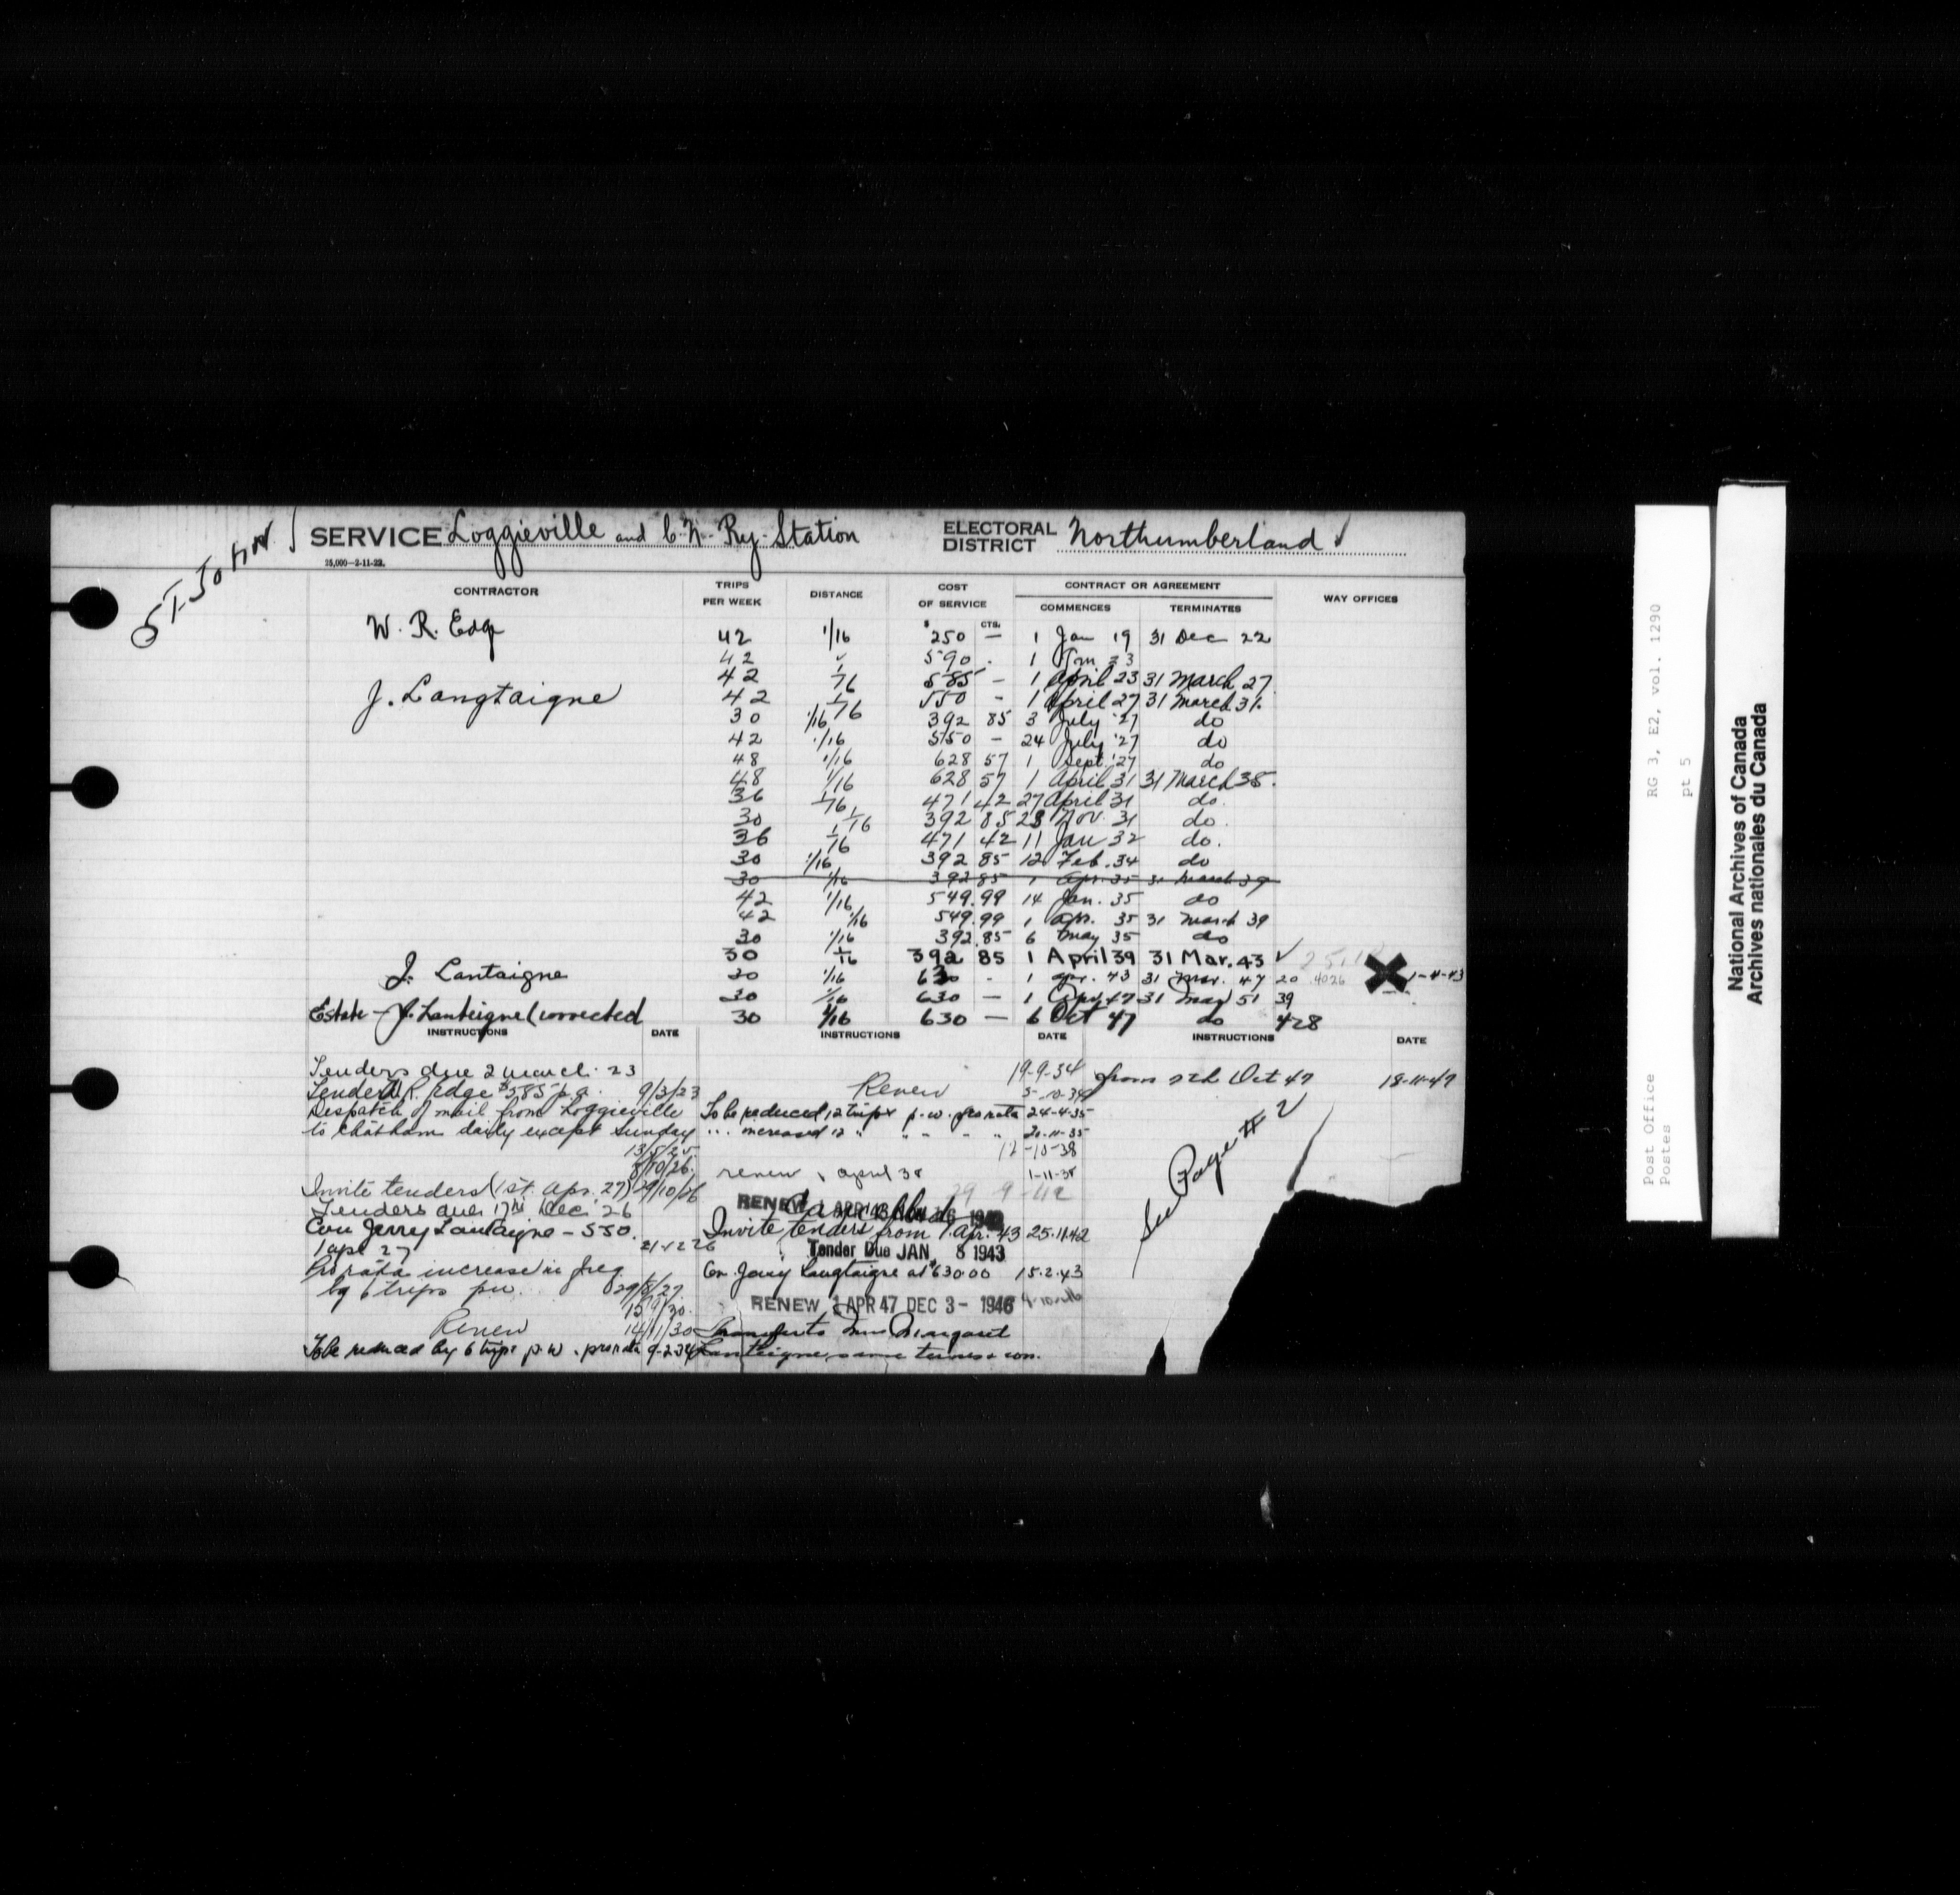 ST. JOHN
SERVICE Loggieville and C. N. Ry. Station ELECTORAL DISTRICT Northumberland
25,000—2-11-22.
CONTRACTOR TRIPS PER WEEK DISTANCE COST OF SERVICE CONTRACT OR AGREEMENT COMMENCES TERMINATES WAY OFFICES
$ CTS.
W. R. Edge 42 1/16 250 — 1 Jan 19 31 Dec 22
42 590 . 1 Jan 23
42 1/16 585 — 1 April 23 31 March 27
J. Langtaigne 42 1/16 550 - 1 April 27 31 March 31.
30 1/16 392 85 3 July '27 do
42 1/16 550 — 24 July '27 do
48 1/16 628 57 1 Sept. '27 do
48 1/16 628 57 1 April 31 31 March 35.
36 1/16 471 42 27 April 31 do.
30 1/16 392 85 23 Nov. 31 do.
36 1/16 471 42 11 Jan 32 do.
30 1/16 392 85 12 Feb. 34 do
30 1/16 392 85 1 Apr. 35 31 March 39
42 1/16 549.99 14 Jan. 35 do
42 1/16 549.99 1 Apr. 35 31 March 39
30 1/16 392.85 6 May 35 do
30 1/16 392 85 1 April 39 31 Mar. 43
J. Lantaigne 30 1/16 630 - 1 Apr. 43 31 Mar. 47 20 4026 1-4-43
30 1/16 630 — 1 Apr. 47 31 Mar 51 39
Estate - J. Lanteigne (corrected 30 1/16 630 — 6 Oct 47 do 428
INSTRUCTIONS DATE INSTRUCTIONS DATE INSTRUCTIONS DATE
Tenders due 2 March. 23
Tender W. R. Edge $585 p.a. 9/3/23
Despatch of mail from Loggieville
to Chatham daily except Sunday
13/5/25.
8/10/26.
Invite tenders (1st. Apr. 27) 29/10/26
Tenders due 17th Dec. 26
Con Jerry Lantaigne - 550.
1 Apl 27
Pro rata increase in freq.
by 6 trips pw. 29/8/27.
15/9/30.
Renew 14/11/30
To be reduced by 6 trips p.w. pro rata 9-2-34
19-9-34
Renew 5-10-34
To be reduced 12 trips p.w. pro rata 24-4-35
" increased 12 " " - - " 20-11-35
12-10-38
renew 1 April 38 1-11-38
29 9-42
RENEW 1 APR '43 Cancelled
Invite tenders from 1 Apr. 43 25.11.42
Tender Due JAN 8 1943
Con. Jerry Langtaigne at $630.00 15.2.43
RENEW 1 APR 47 DEC 3- 1946
Transfer to Mrs Margaret
Lanteigne, same terms & con.
from 7th Oct 47 18-11-47
See Page # 2
RG 3, E2, vol. 1290
pt 5
Post Office
Postes
National Archives of Canada
Archives nationales du Canada